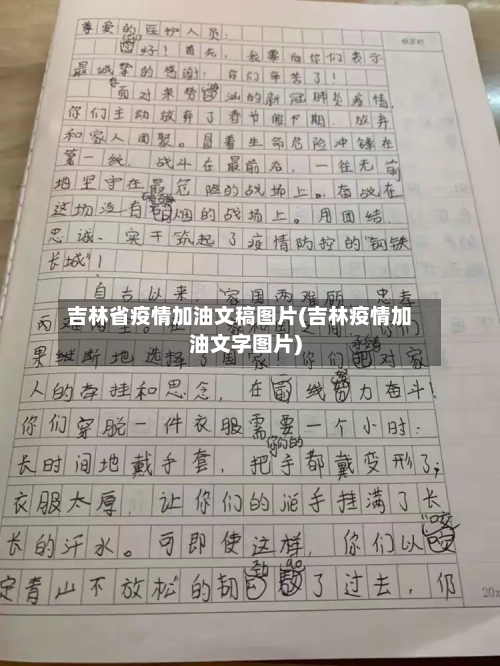 尊爱的医护人员:
你们好!首先,我要向你们表示
最诚挚的感谢:你们辛苦了!
在面对来势汹汹的新冠肺炎疫情,
你们主动放弃了春节假期,放弃
和家人团聚。冒着生命危险冲锋在
第一线,战斗在最前沿,一往无前
地坚守在最危险的战场上。奋战在
这场没有硝烟的战场上。用团结,
忠诚、实干筑起了疫情防控的"钢铁
长城"!
自古以来,家国两难顾,忠孝
吉林省疫情加油文稿图片(吉林疫情加
油文字图片)
果继断地选择了国家!你们把对家
人的牵挂和思念,在前线努力奋斗!
你们穿脱一件衣服需要一个小时:
长时间地戴手套,把你们的手都戴变形了;
衣服太厚,让你们的泊手挂满了长
长的汗水。可即使这样,你们以"咬
定青山不放松"的韧劲 了过去,仍
20x